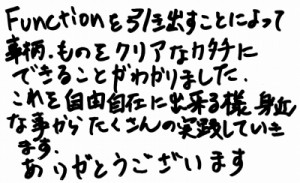 Functionを引き出すことによって
事柄.ものをクリアなカタチに
できることがわかりました.
これを自由自在に出来る様 身近
な事からたくさんの実践していき
ます.
ありがとうございます